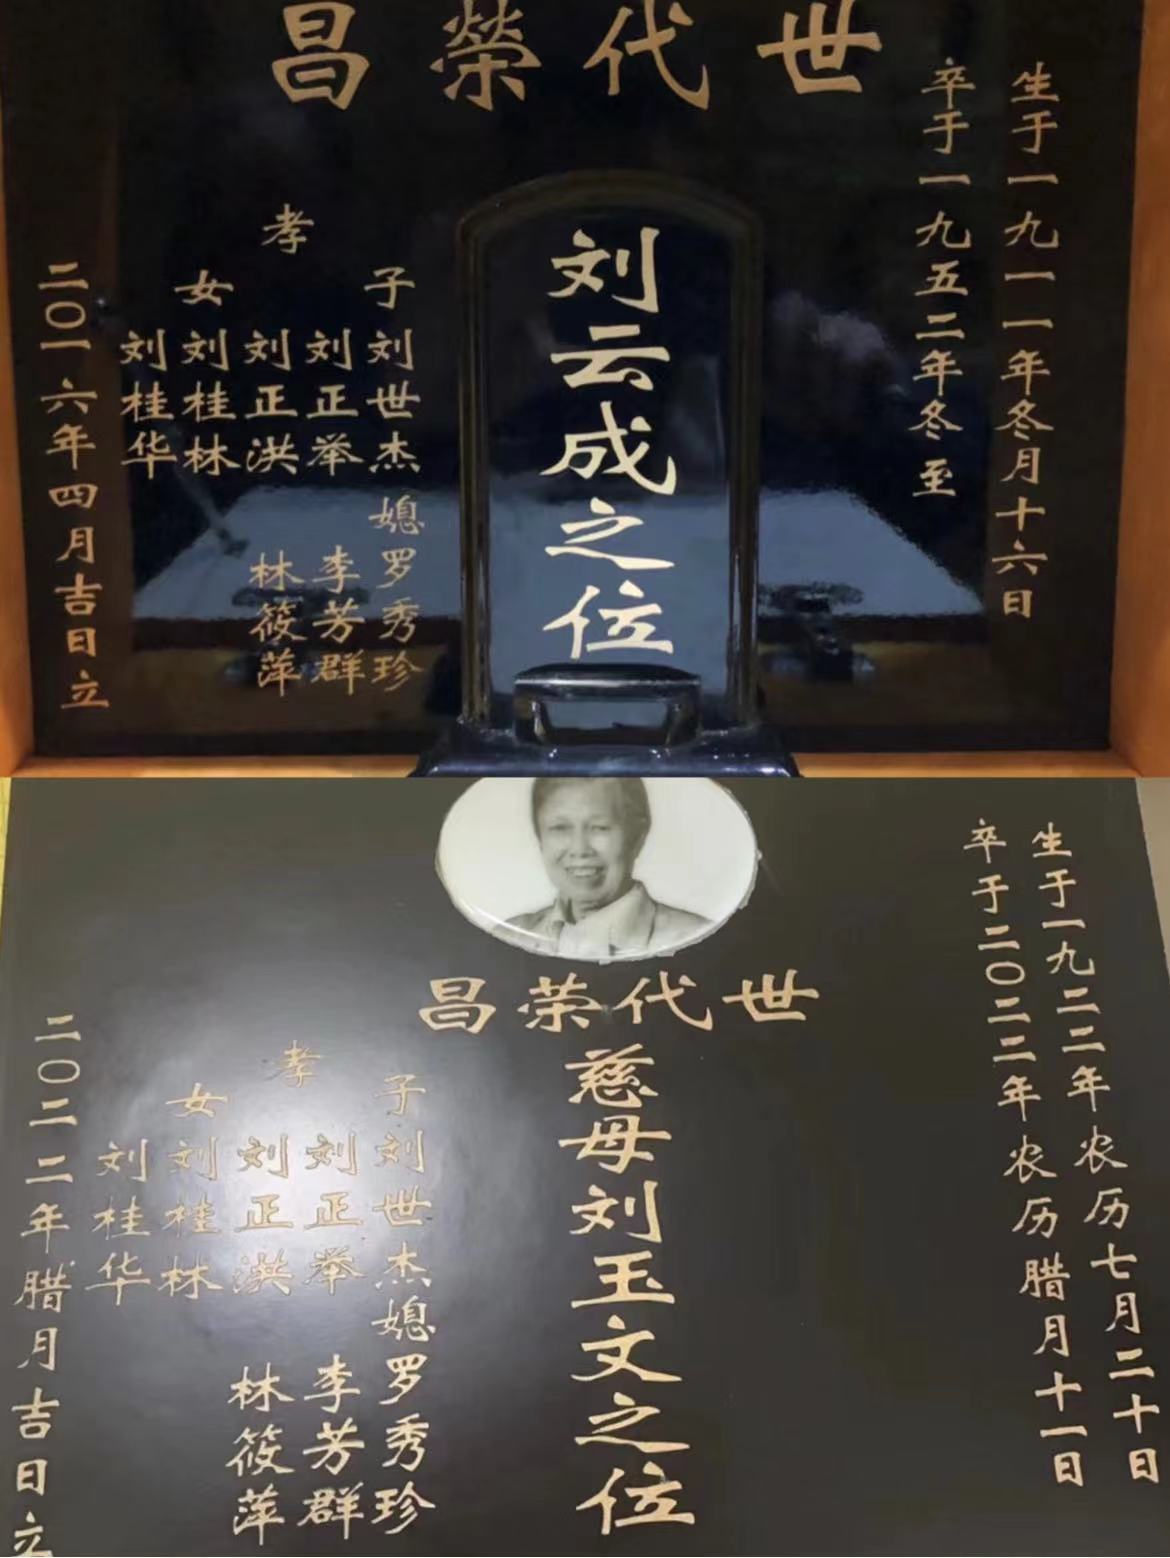 世代榮昌
生于一九一一年冬月十六日
卒于一九五二年冬至
刘云成之位
孝
子刘世杰媳罗秀珍
刘正举 李芳群
刘正洪 林筱萍
女刘桂林
刘桂华
二〇一六年四月吉日立
世代荣昌
生于一九二二年农历七月二十日
卒于二〇二二年农历腊月十一日
慈母刘玉文之位
孝
子刘世杰媳罗秀珍
刘正举 李芳群
刘正洪 林筱萍
女刘桂林
刘桂华
二〇二二年腊月吉日立